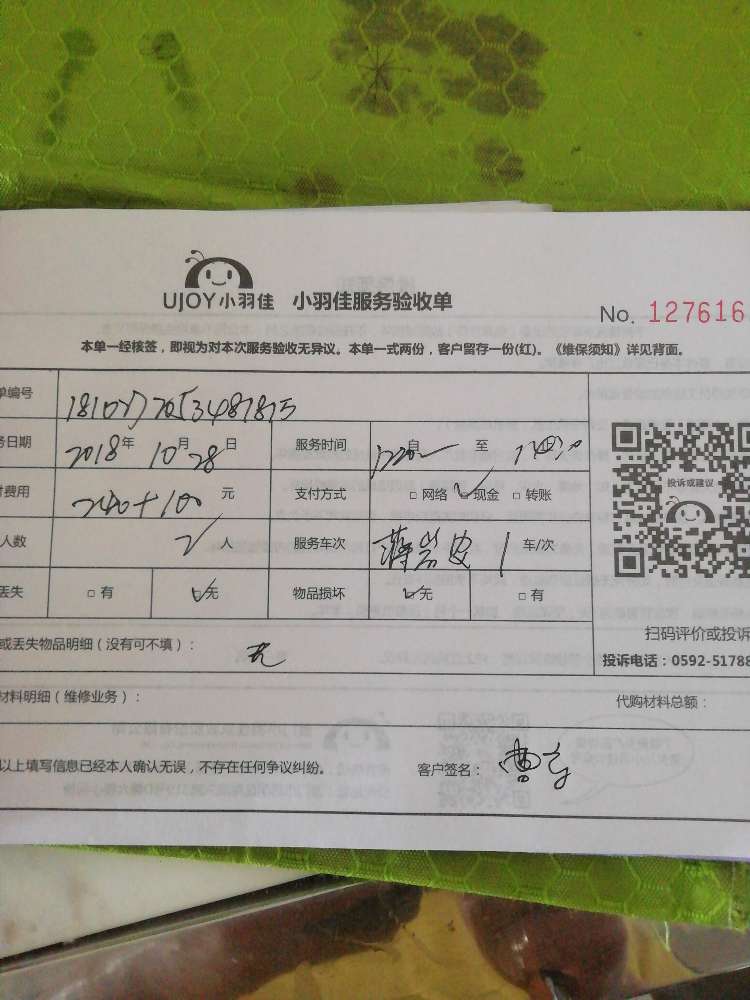 UJOY小羽佳 小羽佳服务验收单
No. 127616
本单一经核签，即视为对本次服务验收无异议。本单一式两份，客户留存一份(红)。《维保须知》详见背面。
单编号
务日期 2018年 10月28日 服务时间 自 至
付费用 240+100 元 支付方式 □网络 ☑现金 □转账
人数 2人 服务车次 1 车/次
丢失 □有 ☑无 物品损坏 ☑无 □有
投诉或建议
扫码评价或投诉
投诉电话：0592-51788
或丢失物品明细（没有可不填）： 无
材料明细（维修业务）： 代购材料总额：
以上填写信息已经本人确认无误，不存在任何争议纠纷。 客户签名： 曹